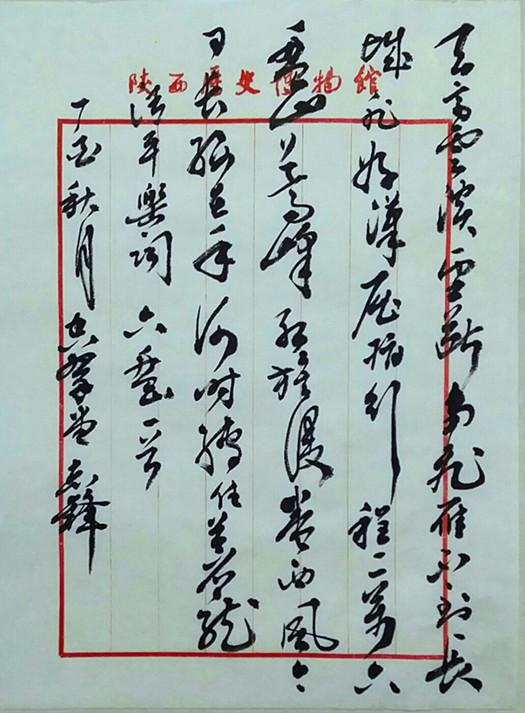 陕西歷史博物館
天高雲淡望断南飛雁不到长
城非好漢屈指行程二萬六
盘山上高峰红旗漫卷西風今
日长缨在手何时缚住苍龙
清平樂词 六盘山一首
丁酉秋月